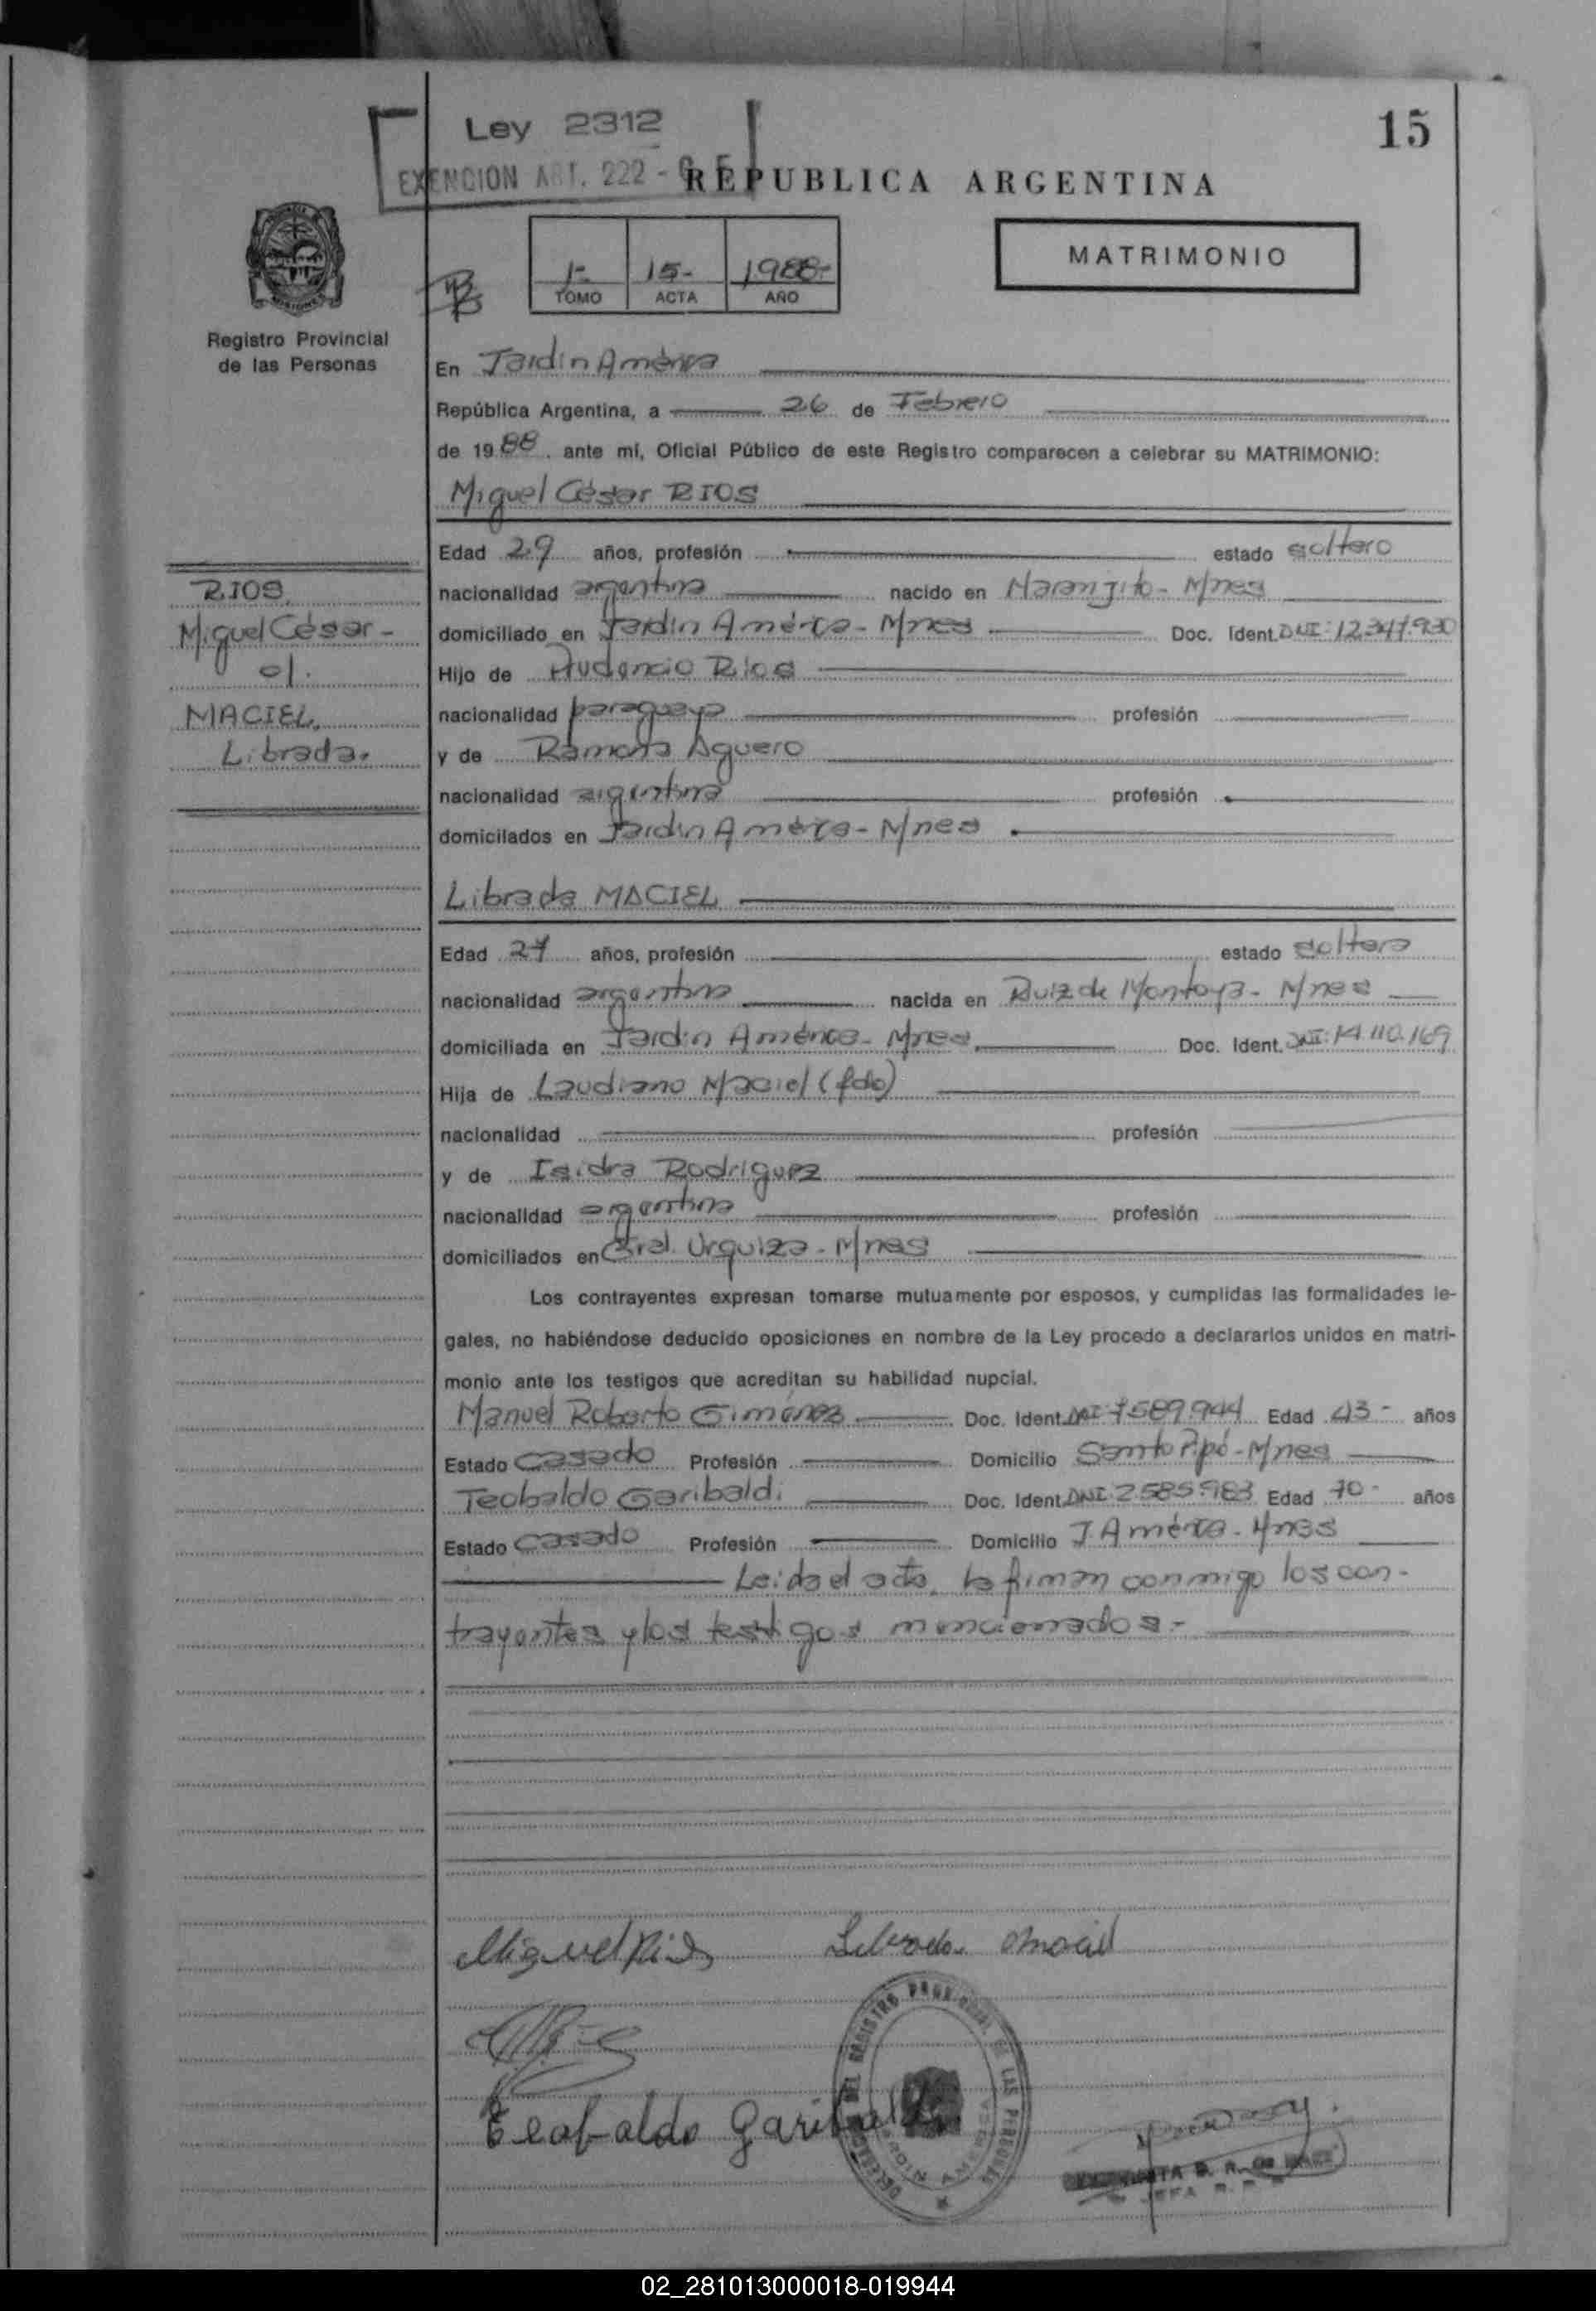 15
Ley 2312
EXENCION ART. 222 -
REPUBLICA ARGENTINA
MATRIMONIO
1- 15- 1988-
TOMO ACTA AÑO
Registro Provincial
de las Personas
En Jardín América
República Argentina, a 26 de Febrero
de 1988, ante mí, Oficial Público de este Registro comparecen a celebrar su MATRIMONIO:
Miguel César RIOS
Edad 29 años, profesión estado soltero
nacionalidad argentina nacido en Naranjito - Mnes
domiciliado en Jardín América - Mnes Doc. Ident. DNI:
Hijo de Prudencio Rios
nacionalidad paraguaya profesión
y de Ramona Aguero
nacionalidad argentina profesión
domicilados en Jardín América - Mnes
RIOS,
Miguel César -
c/.
MACIEL,
Librada.
Librada MACIEL
Edad 27 años, profesión estado soltera
nacionalidad argentina nacida en Ruiz de Montoya - Mnes
domiciliada en Jardín América - Mnes. Doc. Ident. DNI: 14.110.169
Hija de Laudiano Maciel (fdo)
nacionalidad profesión
y de Isidra Rodriguez
nacionalidad argentina profesión
domiciliados en Gral. Urquiza - Mnes
Los contrayentes expresan tomarse mutuamente por esposos, y cumplidas las formalidades le-
gales, no habiéndose deducido oposiciones en nombre de la Ley procedo a declararlos unidos en matri-
monio ante los testigos que acreditan su habilidad nupcial.
Manuel Roberto Giménez Doc. Ident. DNI: 7.589.944 Edad 43- años
Estado Casado Profesión Domicilio Santo Pipó - Mnes
Teobaldo Garibaldi Doc. Ident. DNI: 2.585.983 Edad 70- años
Estado Casado Profesión Domicilio J. América - Mnes
Leida el acta, la firman conmigo los con-
trayentes y los testigos mencionados.-
Miguel Rios Librada Maciel
Teobaldo Garibaldi
02_281013000018-019944